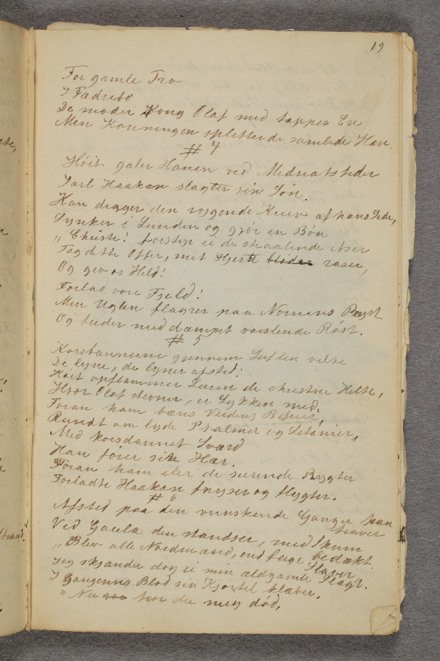 19
For gamle Tro
I Fædrebo
De møder Kong Olaf med tappre En
Men Konningen splittede samlede Hær
# 4
Høit galer Hanen ved Midnatstider
Jarl Haakan slagter sin Søn.
Han drager den rygende Kniv af hans Side,
Synker i Lunden og gjør en Bøn
"Christe! først ei de skaalende Aser
Tag dette Offer, mit Hjerte bløder raser,
Og giv os Held!
Forlad vore Fjeld!
Men Uglen flagrer paa Nornens Bryst
Og tuder med dæmpet varslende Røst.
# 5
Korsbannerne gjennem Luften velse
De lyne, de lyner afsted!
Høit opflammer Luren de christne Helte,
Hvor Olaf stevner, er Lykken med.
Foran ham bæres
Rundt om lyde Psalmer og Litanier,
Med korsdannet Sværd
Han fører sin Hær.
Foran ham iler de susende Rygter
Forladte Haakan fnyser og flygter.
# 6
Afsted paa den vrinskende Ganger han traver
Ved Gaula den standser, med Skum bedækt.
"Blev alle Nordmænd, end feige Slaver
Jeg skjænder dog ei min ældgamle Slægt.
I Gangerens Blod sin Kjortel klaber,
"Nu tror du mig død,